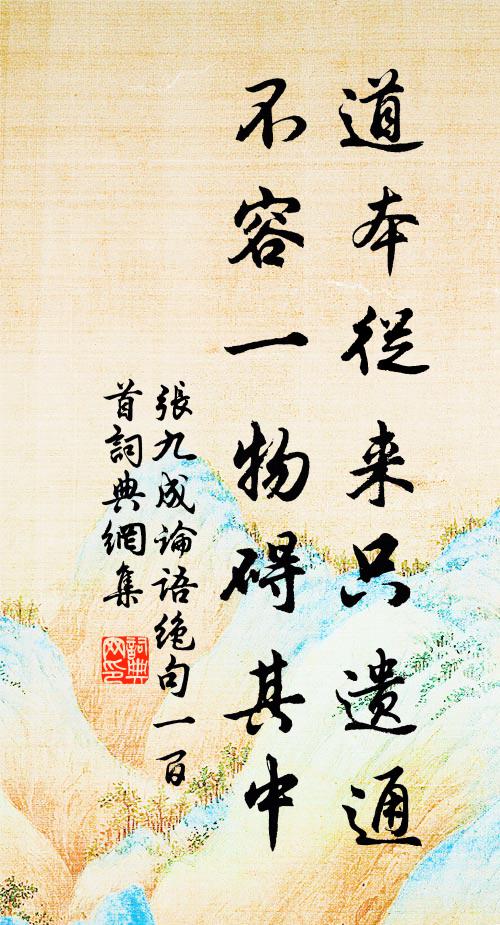 道本從来只遗通
不容一物碍其中
張九成論语绝句一百
首詞典網集
詞典
网印